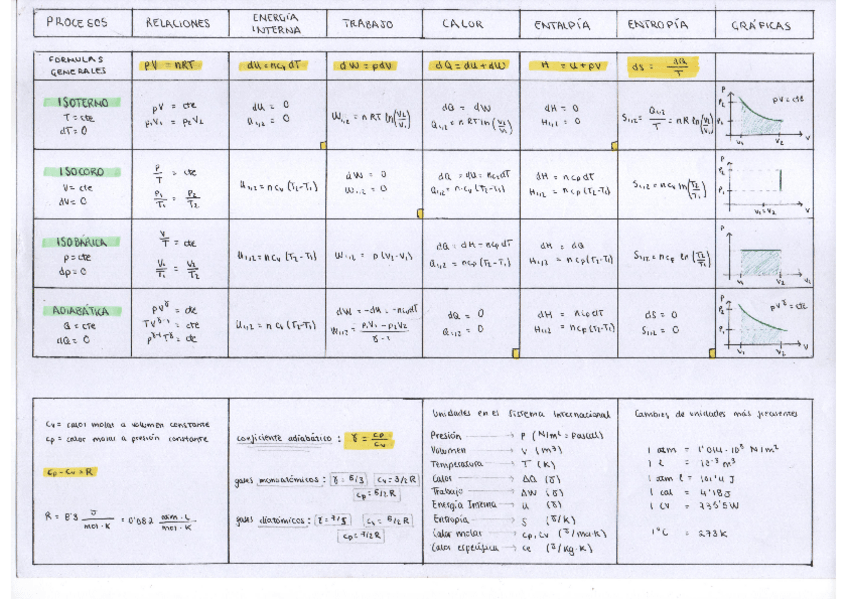 PROCESOS RELACIONES ENERGÍA INTERNA TRABAJO CALOR ENTALPÍA ENTROPÍA GRÁFICAS
FORMULAS GENERALES pV = nRT dU = ncv dT dW = pdV dQ = dU + dW H = U + pV dS = dQ/T
ISOTERMO
T = cte
dT = 0
pV = cte
p1V1 = p2V2
dU = 0
Q1,2 = 0
W1,2 = nRT ln(V2/V1)
dQ = dW
Q1,2 = nRT ln(V2/V1)
dH = 0
S1,2 = Q1,2/T = nR ln(V2/V1)
P
P2
P1
pV = cte
V1 V2
ISOCORO
V = cte
dV = 0
P/T = cte
P1/T1 = P2/T2
U1,2 = ncv (T2-T1)
dW = 0
W1,2 = 0
dQ = dU = ncv dT
Q1,2 = n cv (T2-T1)
dH = ncp dT
H1,2 = ncp (T2-T1)
S1,2 = ncv ln(T2/T1)
P
P2
P1
V1=V2
ISOBÁRICA
p = cte
dp = 0
V/T = cte
V1/T1 = V2/T2
U1,2 = ncv (T2-T1)
W1,2 = p(V2-V1)
dQ = dH = ncp dT
Q1,2 = ncp (T2-T1)
dH = dQ
H1,2 = ncp (T2-T1)
S1,2 = ncp ln(T2/T1)
P
V1 V2
ADIABÁTICA
Q = cte
dQ = 0
pVγ = cte
TVγ-1 = cte
U1,2 = n cv (T2-T1)
dW = -dU = -ncv dT
W1,2 = p1V1 - p2V2 / γ-1
dQ = 0
Q1,2 = 0
dH = ncp dT
H1,2 = ncp (T2-T1)
dS = 0
S1,2 = 0
P
P2
P1
pVγ = cte
V1 V2
cv = calor molar a volumen constante
cp = calor molar a presión constante
cp - cv = R
R = 8'3 J/mol·K = 0'082 atm·L/mol·K
coeficiente adiabático: γ = cp/cv
gases monoatómicos: γ = 5/3 cv = 3/2 R
cp = 5/2 R
gases diatómicos: γ = 7/5 cv = 5/2 R
cp = 7/2 R
Unidades en el Sistema Internacional
Presión → P (N/m² = pascal)
Volumen → V (m³)
Temperatura → T (K)
Calor → ΔQ (J)
Trabajo → ΔW (J)
Energía Interna → U (J)
Entropia → S (J/K)
Calor molar → cp, cv (J/mol·K)
Calor específico → ce (J/kg·K)
Cambios de unidades más frecuentes
1 atm = 1'014·10⁵ N/m²
1 l = 10⁻³ m³
1 atm l = 101'4 J
1 cal = 4'18 J
1 CV = 735'5 W
1°C = 273K